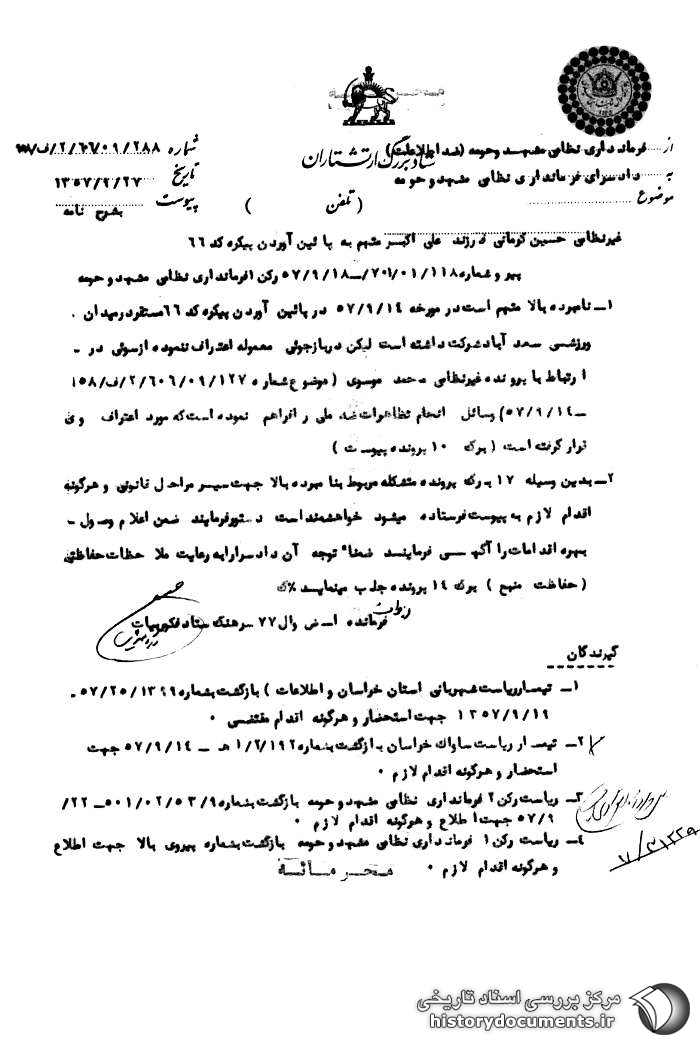 ستاد بزرگ ارتشتاران
از فرمانداری نظامی مشهد و حومه (ضد اطلاعات)
به دادسرای فرمانداری نظامی مشهد و حومه
موضوع
شماره
تاریخ ۱۳۵۷/۹/۲۷
پیوست بشرح نامه
(تلفن )
غیرنظامی حسین کرمانی فرزند علی اکبر متهم به پائین آوردن پیکره کد ۶۶
پیرو شماره ۷۰۱/۰۱/۱۱۸ــ۵۷/۹/۱۸ رکن ۱ فرمانداری نظامی مشهد و حومه
۱ــ نامبرده بالا متهم است در مورخه ۵۷/۹/۱۴ در پائین آوردن پیکره کد ۶۶ مستقر در میدان .
ورزشی سعد آباد شرکت داشته است لیکن در بازجوئی معموله اعتراف ننموده از سوئی در ــ
ارتباط با پرونده غیرنظامی محمد موسوی (موضوع شماره ۲/۶۰۶/۰۹/۱۲۷/ف/۱۵۸
ــ۵۷/۹/۱۴) وسائل انجام تظاهرات ضد ملی را فراهم نموده است که مورد اعتراف وی
قرار گرفته است (برگ ۱۰ پرونده پیوست)
۲ــ بدین وسیله ۱۷ برگ پرونده متشکله مربوط بنامبرده بالا جهت سیر مراحل قانونی و هرگونه
اقدام لازم به پیوست فرستاده میشود خواهشمند است دستور فرمایند ضمن اعلام وصول ــ
بهره اقدامات را آگهی فرمایند ضمنا" توجه آن دادسرا را به رعایت ملاحظات حفاظتی
(حفاظت منبع) برگ ۱۴ پرونده جلب مینماید
فرمانده سرهنگ ستاد
گیرندگان
۱ــ تیمسار ریاست شهربانی استان خراسان و اطلاعات) بازگشت بشماره ۵۷/۲۵/۱۳۴۹ ــ
۱۳۵۷/۹/۱۹ جهت استحضار و هرگونه اقدام مقتضی .
۲ــ تیمسار ریاست ساواک خراسان بازگشت بشماره ۱/۲/۱۹۲ هـ ــ ۵۷/۹/۱۴ جهت
استحضار و هرگونه اقدام لازم .
۳ــ ریاست رکن ۲ فرمانداری نظامی مشهد و حومه بازگشت بشماره ۵۰۱/۰۲/۵۳/۹ــ۲۲/
۵۷/۹ جهت اطلاع و هرگونه اقدام لازم .
۴ــ ریاست رکن ۱ فرمانداری نظامی مشهد و حومه بازگشت بشماره پیروی بالا جهت اطلاع
و هرگونه اقدام لازم .
محرمانه
مرکز بررسی اسناد تاریخی
historydocuments.ir